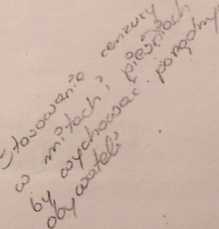 Stosowanie cenzury
w mitach i pieśniach
by wychować porządnych
obywateli